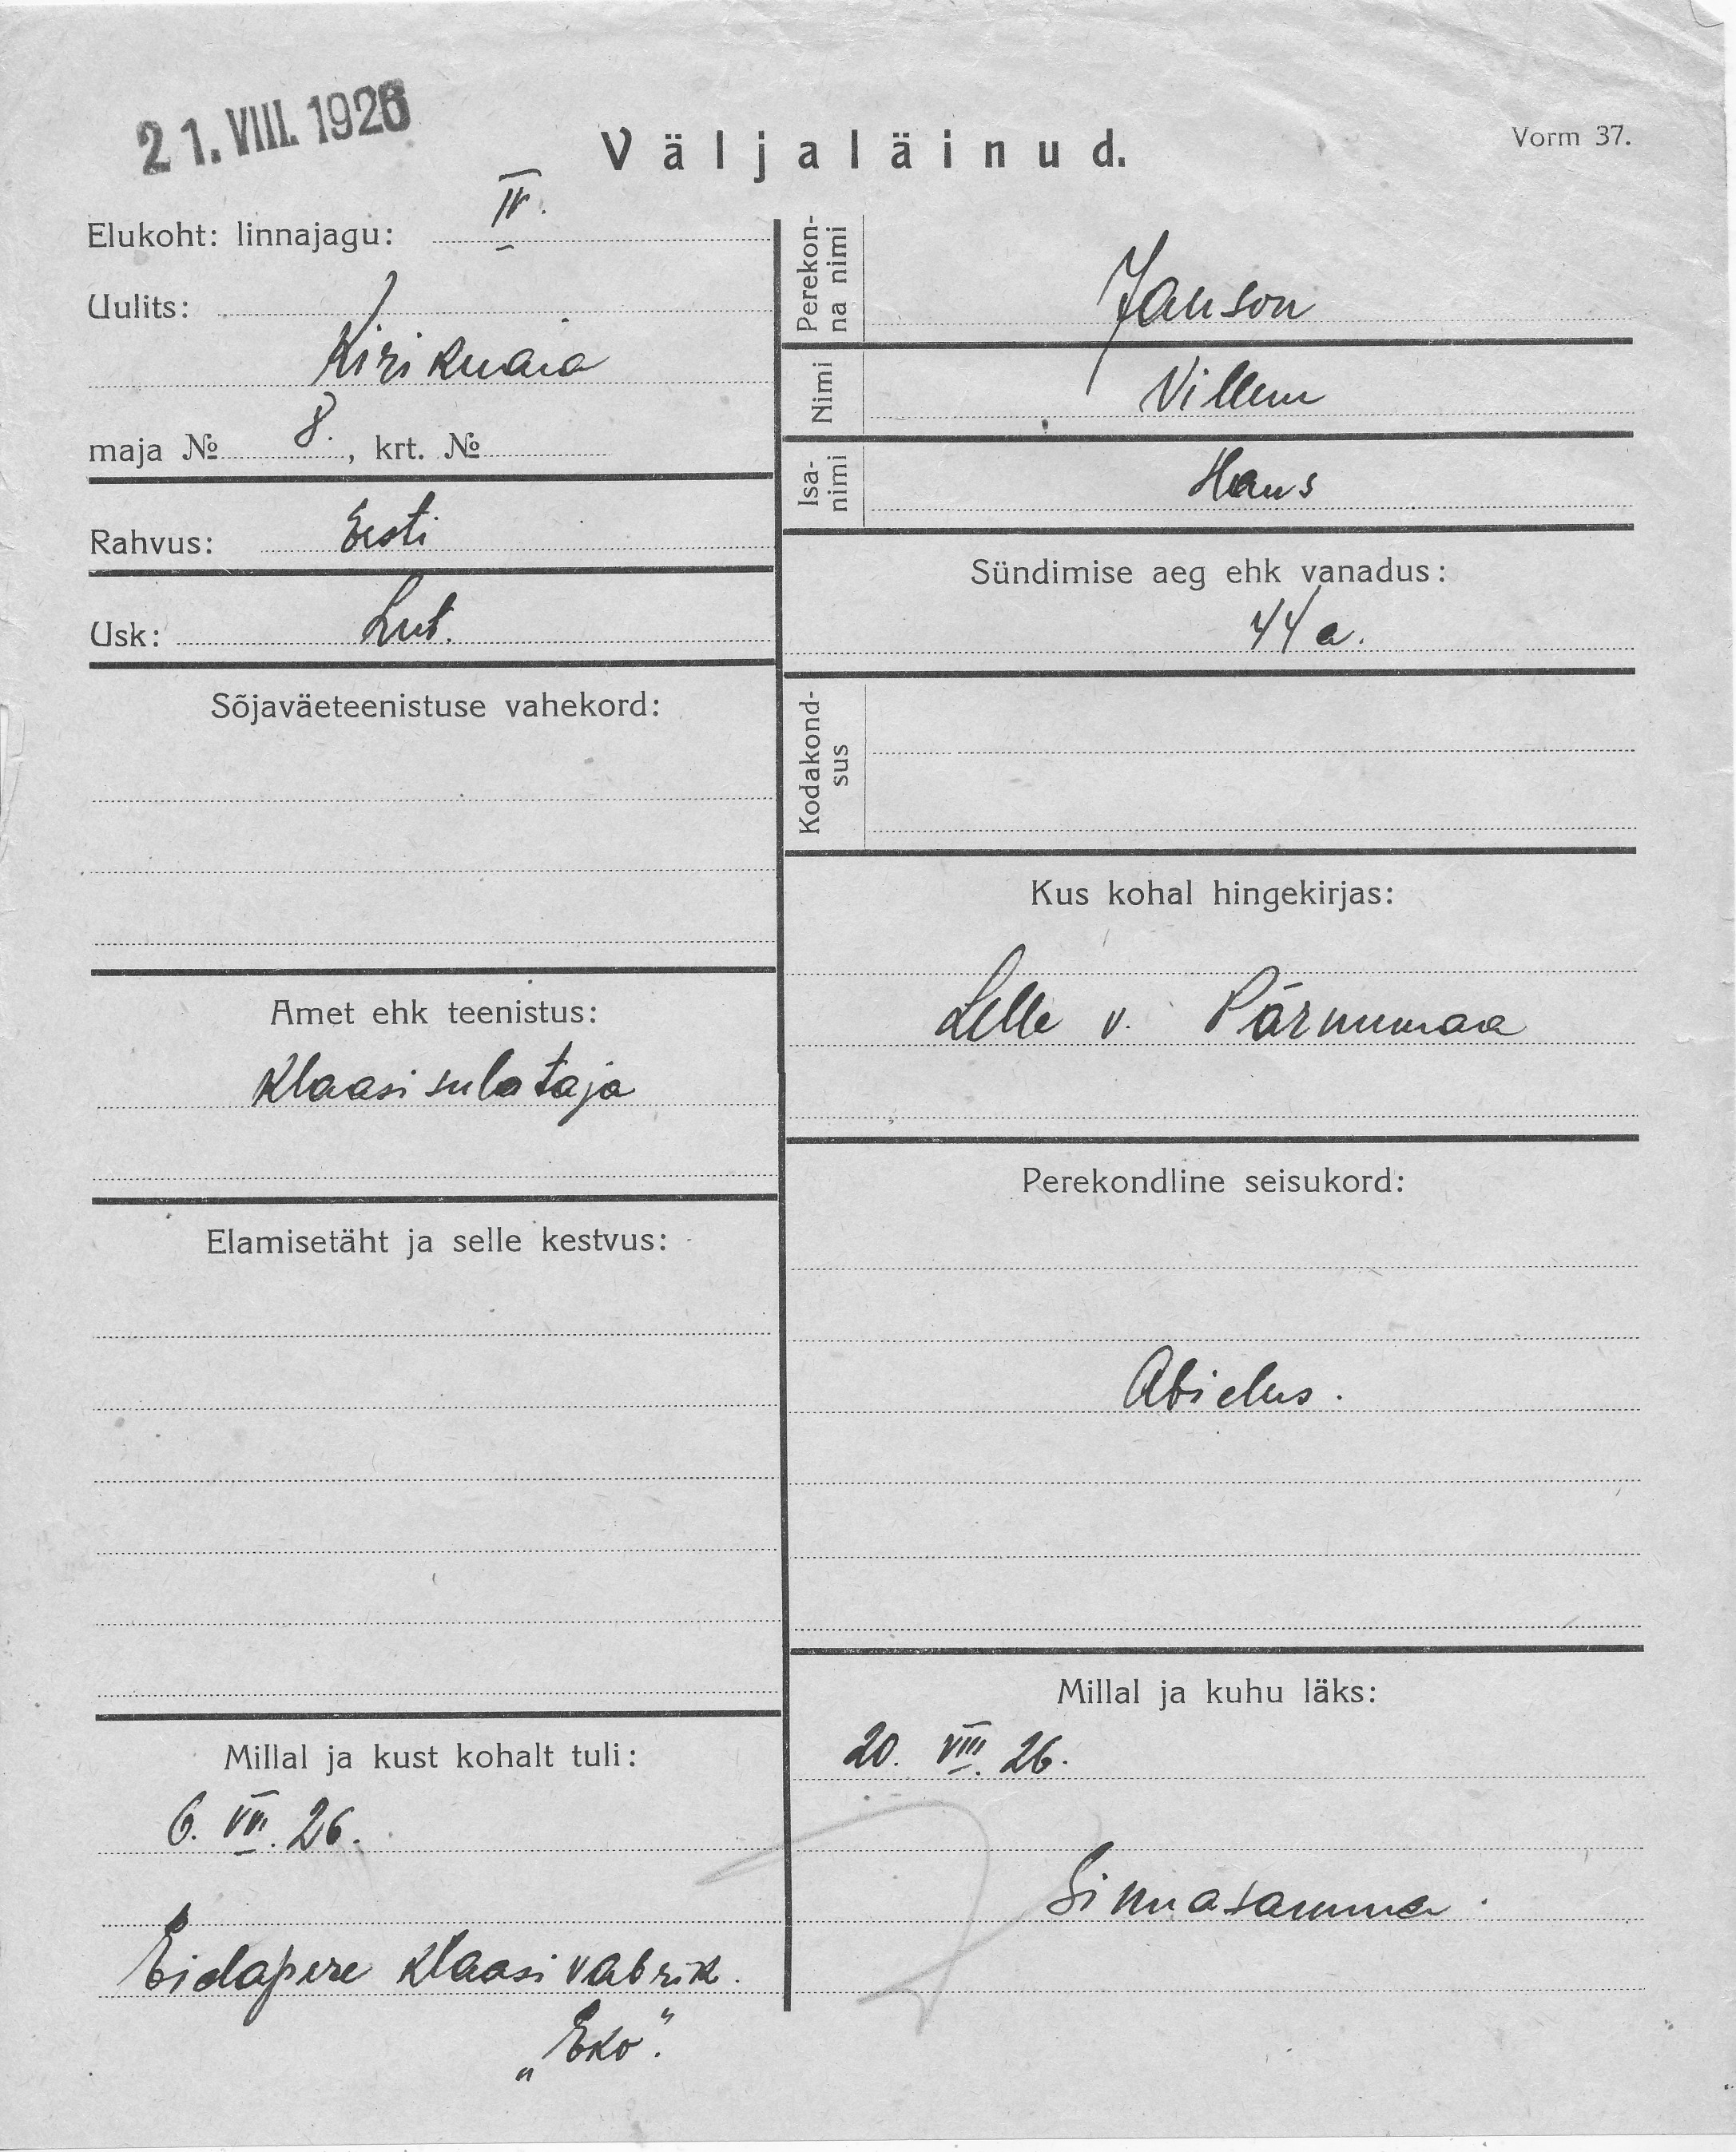 21. VIII. 1926
Väljaläinud.
Vorm 37.
Elukoht: linnajagu: IV.
Uulits:
Kirikuaia
maja № 8., krt. №
Rahvus: Eesti
Usk: Lut.
Sõjaväeteenistuse vahekord:
Amet ehk teenistus:
Klaasisulataja
Elamisetäht ja selle kestvus:
Millal ja kust kohalt tuli:
6. VII. 26.
Eidapere klaasivabrik.
„Eko".
Perekon-
na nimi
Janson
Nimi
Villem
Isa-
nimi
Hans
Sündimise aeg ehk vanadus:
44 a.
Kodakond-
sus
Kus kohal hingekirjas:
Lelle v. Pärnumaa
Perekondline seisukord:
Abielus.
Millal ja kuhu läks:
20. VIII. 26.
Sinnasamma.